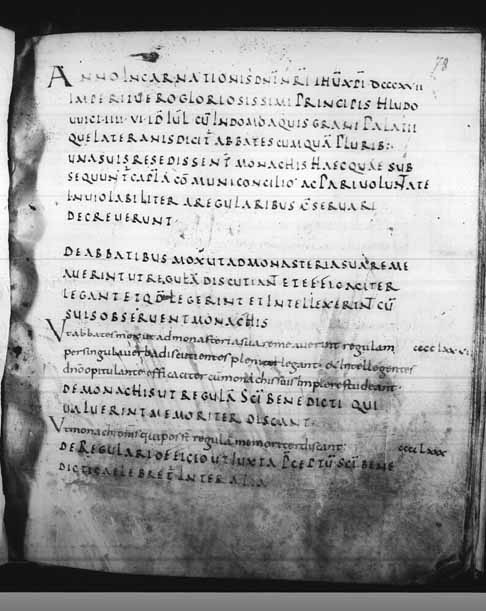 78
ANNO INCARNATIONIS DNI NRI IHU XPI DCCCXVII
IMPERII UERO GLORIOSISSIMI PRINCIPIS HLUDO
UUICI IIII VI ID IUL CU IN DOMO AQUISGRANI PALATII
QUE LATERANIS DICIT ABBATES CUM QUA PLURIB:
UNA SUIS RESEDISSENT MONACHIS HAEC QUAE SUB
SEQUUNT CAPLA COMMUNI CONCILIO AC PARI UOLUNTATE
INUIOLABILITER A REGULARIBUS CSERUARI
DECREUERUNT.
DE ABBATIBUS MOX UT AD MONASTERIA SUA REME
AUERINT UT REGULA DISCUTIANT ET EFFICACITER
LEGANT ET QD LEGERINT ET INTELLEXERINT CU
SUIS OBSERUENT MONACHIS
Ut abbates mox ut ad monasteria sua remeauerint regulam cccc lxx
per singula uerba discutientes pleniter legant & intellegentes
dno opitulante efficaciter cum monachis suis implere studeant.
DE MONACHIS UT REGULA SCI BENEDICTI QUI
UALUERINT MEMORITER DISCANT.
Ut monachi omis qui posst regula memoriter discant: cccc lxxx
DE REGULARI OFFICIO UT IUXTA PCEPTU SCI BENE
DICTI CAELEBRET INTER ALIA